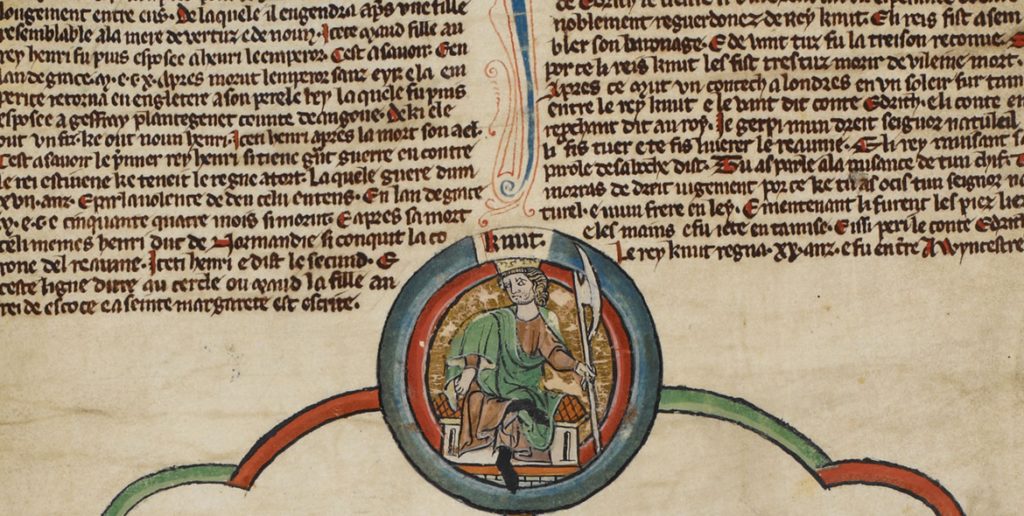 longement entre eus. De laquele il engendra apres une fille
resemblable a la mere de vertuz e de noun. Icete maud fille au
rey henri fu puis esposee a henri lemperor. Cest a savoir. En
lan de grace. m. e. c. x. Apres morut lemperor sanz eyr. e la em
perice retorna en engletere a son pere le rey la quele fu puis
esposee a geffray plantegenet counte de angoue. De ki ele
out un fiz. ke out noun henri. Iceti henri apres la mort son ael.
Cest a savoir le primer rey henri si tient grant guerre en contre
le rei estivene ke teneit le regne a tort. La quele guere dura
x vii. anz. E par la violence de
En lan de grace
m. c. e cinquante quatre mois si morut. E apres sa mort
celi memes henri duc de Normandie si conquit la co
rone del reaume. Iceti henri e dist le secund. E
ceste ligne dure au cercle ou maud la fille au
rei de escoce e a seinte margarete est escrite.
noblement reguerdonez de Rey knut. E li reis fist asem
bler son barnage. E de vant tuz fu la treison reconue.
por ce li reis knut les fist trestuz morir de vileine mort.
Apres ce mut un contech a londres en un soleir sur tam
entre le rey knut e le vant dit conte Edrith. e li conte en
reprchant dit au roy. Je gerpi mun dreit seignor naturell
li fis tuer e te fis livrer le reaume. E li rey rusant la
parole de sa boche dist. Tu as parle a la nusance de tun chyf. T
morras de dreit jugement por ce ke tu as ocis tun seignor na
turel. e mun frere en ley. E meintenant li furent les piez liez
e les mains e fu jete en tamise. E issi peri le conte Edrith
Le rey knut regna. xx. anz. e fu enterre A Wyncestre
knut.